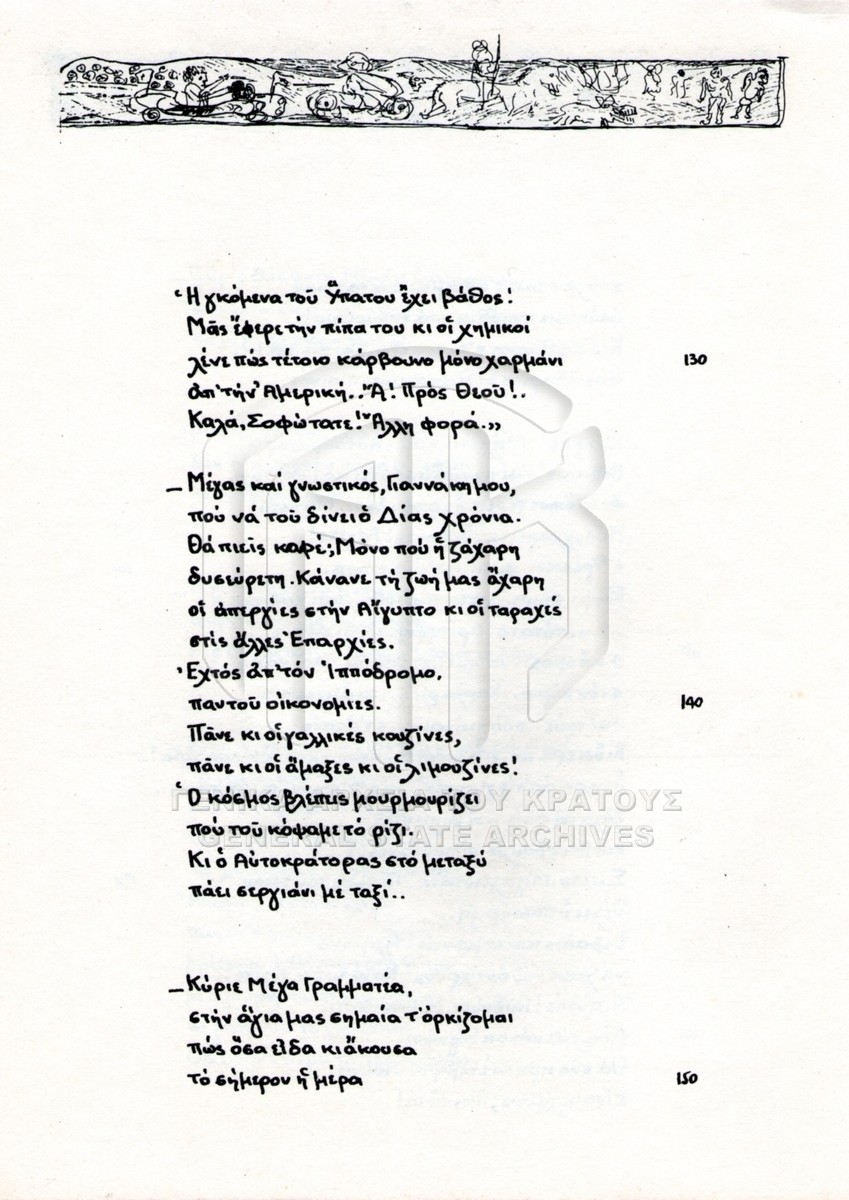 ‘Η γκόμενα τοῦ Ὕπατου ἔχει βάθος!
Μᾶς ἔφερε τήν πίπα του κι οἱ χημικοί
λένε πώς τέτοιο κάρβουνο μόνο χαρμάνι 130
ἀπ’ τήν Ἀμερική.. Ἄ! Πρός Θεοῦ!.
Καλά, Σοφώτατε! Ἄλλη φορά.»
– Μέγας καί γνωστικός, Γιαννάκη μου,
πού νά τοῦ δίνει ὁ Δίας χρόνια.
Θά πιεῖς καφέ; Μόνο πού ἡ ζάχαρη
δυσεύρετη. Κάνανε τή ζωή μας ἄχαρη
οἱ ἀπεργίες στήν Αἴγυπτο κι οἱ ταραχές
στίς ἄλλες Ἐπαρχίες.
Ἐχτός ἀπ’ τόν Ἱππόδρομο,
παντοῦ οἰκονομίες. 140
Πᾶνε κι οἱ γαλλικές κουζίνες,
πᾶνε κι οἱ ἅμαξες κι οἱ λιμουζίνες!
Ὁ κόσμος βλέπεις μουρμουρίζει
πού τοῦ κόψαμε τό ρίζι.
ΓΕΝΙΚΑ ΑΡΧΕΙΑ ΤΟΥ ΚΡΑΤΟΥΣ
GENERAL STATE ARCHIVES
Κι ὁ Αὐτοκράτορας στό μεταξύ
πάει σεργιάνι μέ ταξί..
– Κύριε Μέγα Γραμματέα,
στήν ἅγια μας σημαία τ’ ὁρκίζομαι
πώς ὅσα εἶδα κι ἄκουσα
τό σήμερον ἡ μέρα 150